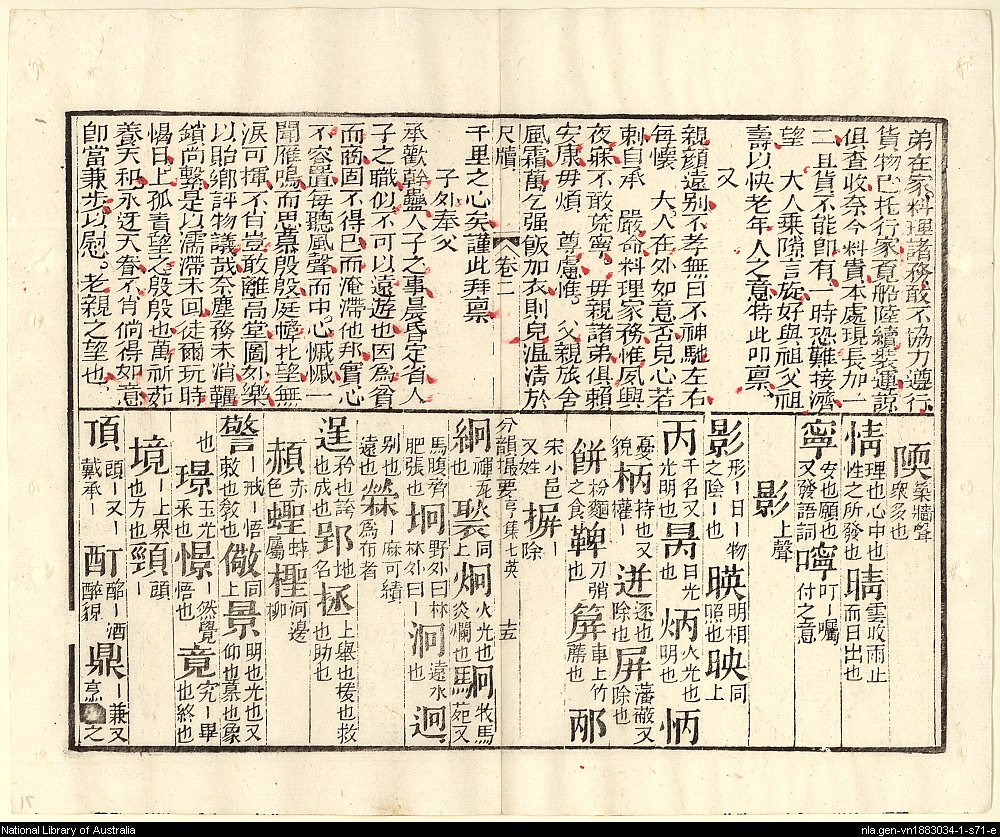 弟在家料理諸務敢不協力遵行
貨物已托行家覓船陸續裝運諒
俱查收奈今料貴本處現長加一
二且貨不能即有一時恐難接濟
望 大人乘隙言旋好與祖父祖
壽以快老年人之意特此叩稟
又
親顏遠别不孝無日不神馳左右
每懐 大人在外如意否兒心若
刺自承 嚴命料理家務惟夙興
夜寐不敢荒寧毋親諸弟俱賴
安康毋煩 尊慮惟 父親旅舍
風霜萬乞强飯加衣則兒温清於
尺牘 卷二
千里之心矣謹此拜稟
子外奉父
承歡幹蠱人子之事晨昏定省人
子之職似不可以遠遊也因為貧
而商固不得已而淹滯他邦實心
不容置每聽風聲而中心慽慽一
聞雁鳴而思慕殷殷庭幃圠望無
淚可揮不肖豈敢離高堂圖外樂
以貽鄉評物議哉奈塵務未消韁
鎖尚繫是以濡滯未回徒爾玩時
愒日上孤責望之殷殷也萬祈茹
養天和永迓天眷不肖倘得如意
即當兼步以慰 老親之望也
陾 築墻聲 衆多也
情 理也心中也 性之所發也 晴 雲收雨止 而日出也
寧 安也願也 又發語詞 嚀 叮-囑 付之意
影 上聲
影 形-日-物 之陰-也 暎 明相 照也 映 同上
丙 千名又 光明也 昺 日光也 炳 火光也 明也 怲
憂也 柄 權-持也又 迸 逐也 除也 屏 藩蔽又 除也
餅 粉麵 之食 鞞 刀鞘也 箳 車上竹 蔽也 邴
宋小邑 又姓 摒 除
分韻撮要 亨集七英 十五
絅 禪衣也 褧 同上 炯 火光也 炎爛也 駉 牧馬 苑又
馬腹齊 肥張也 坰 野外曰林 林外曰- 泂 遠水也 迥
别也 遠也 檾 -麻可績 為布者
逞 矜也誇 也成也 郢 地名 拯 上舉也援也救 也助也
頳 赤色 蟶 蚌屬 檉 河邊柳
警 -戒-悟 敕也敎也 儆 同上 景 明也光也又 仰也慕也象
也 璟 玉光 釆也 憬 -然覺 悟也 竟 究-畢 也終也
境 -上界 也方也 頸 頭-
頂 頭-又 戴承- 酊 酩-酒 醉貌 鼎 -兼又 烹 之
National Library of Australia
nla.gen-vn1883034-1-s71-e